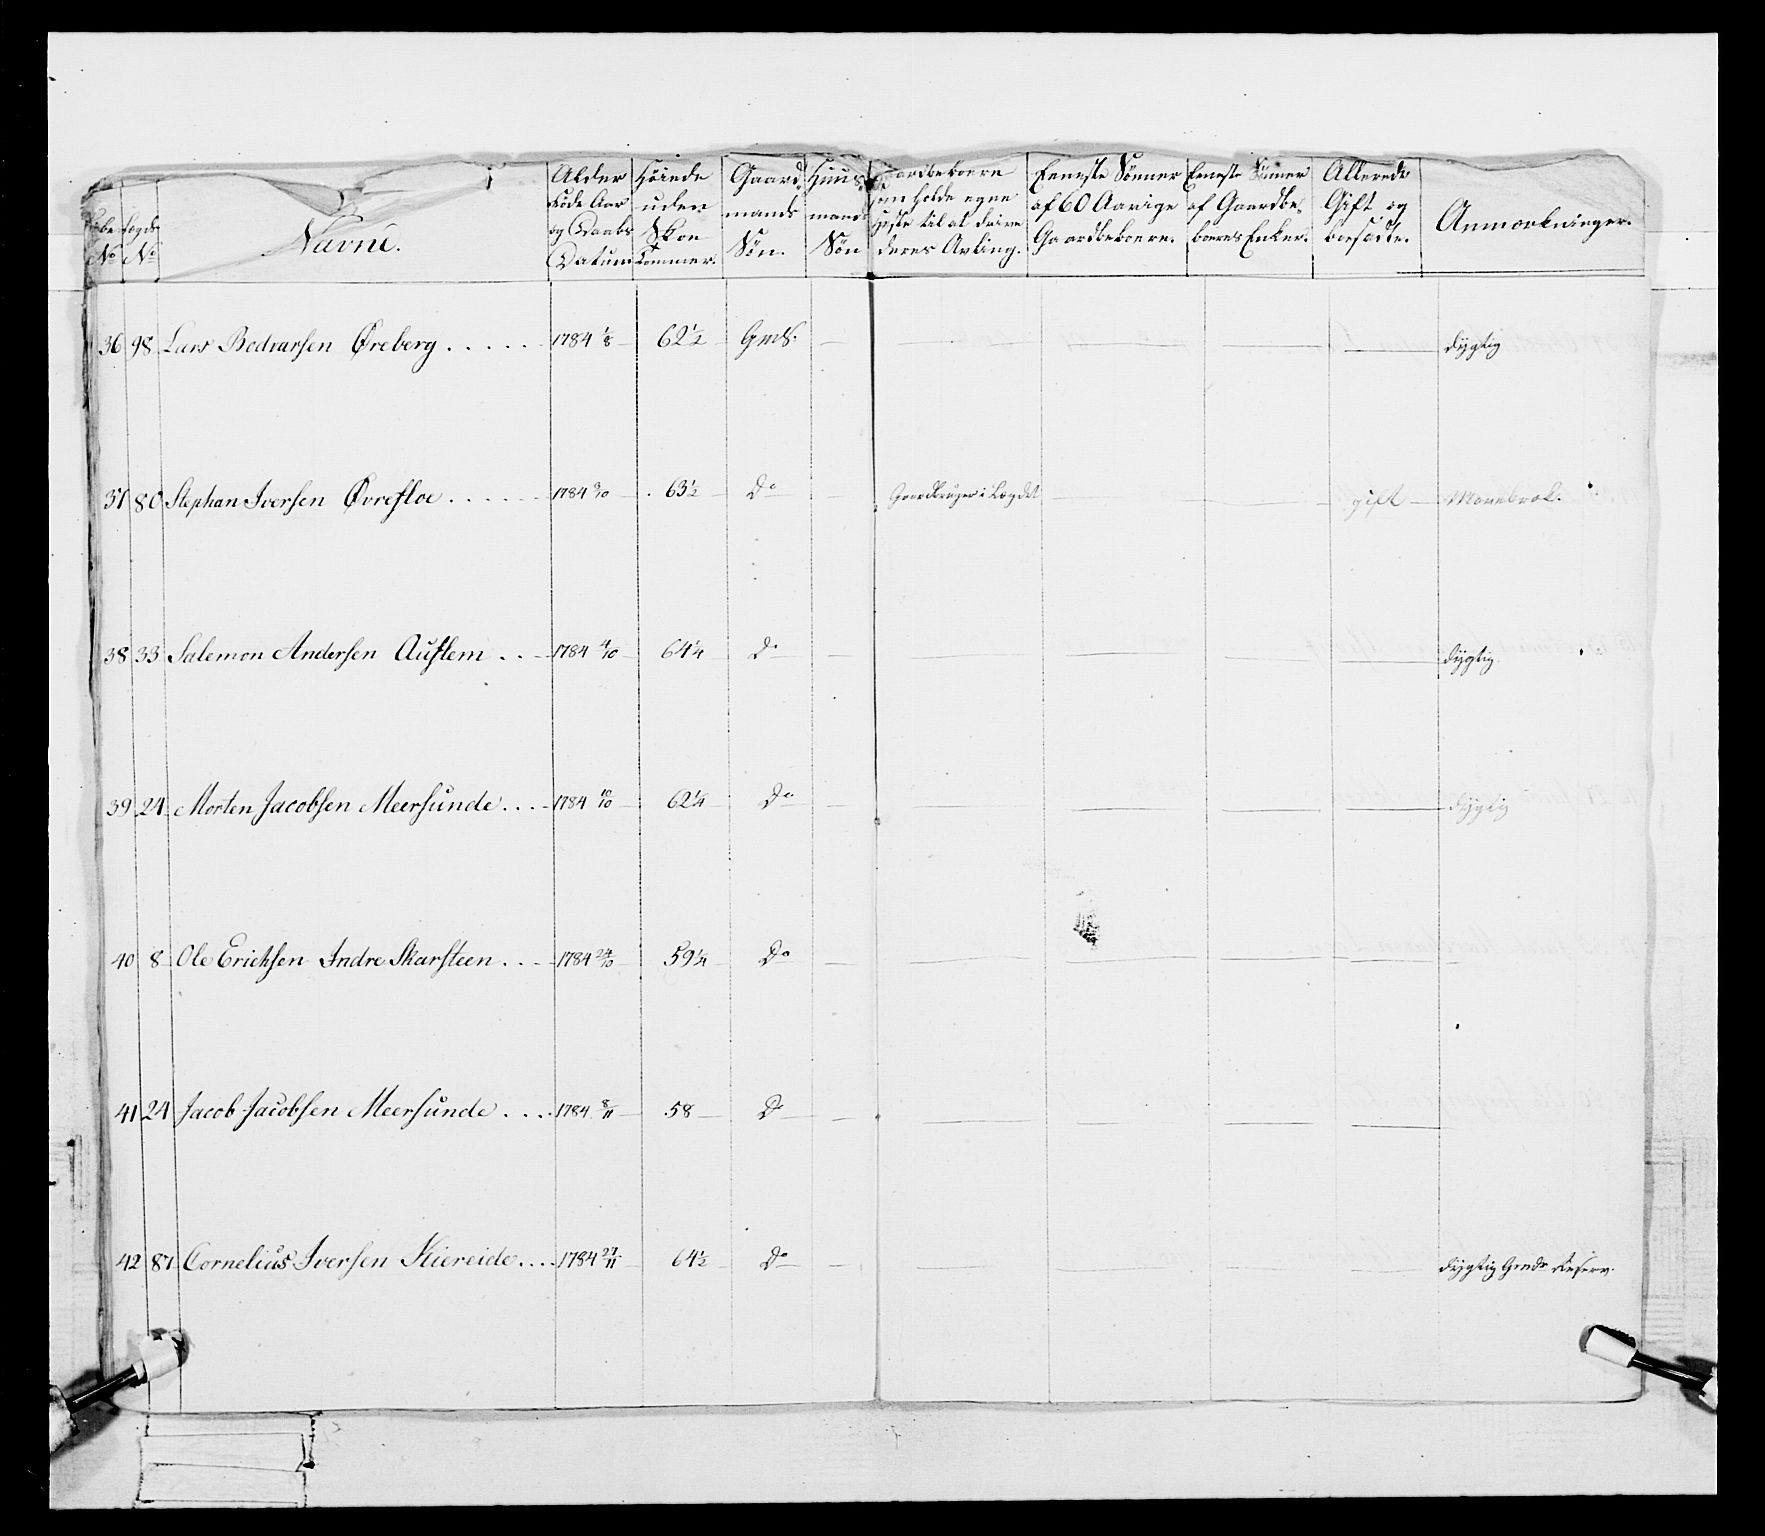 Løbe No
Lægds No
Navne.
Alder Føde Aar og Daabs Datum
Høiede uden Skoe Tommer.
Gaardmands Søn.
Huusmands Søn
Gaardbeboere som holde egne Heste til at drive deres Avling.
Eeneste Sönner af 60 Aarige Gaardbeboere.
Eeneste Sönner af Gaardbeboeres Enker.
Allerede Gift og bosadte.
Anmærkninger.
36 98 Lars Bodvarsen Øreberg ..... 1784 1/8 62 1/2 Gmds. dygtig
37 80 Stephan Iversen Øvrefloe ...... 1784 3/10 63 1/2 Do Gaardbruger i Lægdet gift
38 33 Salemon Andersen Auflem .. 1784 4/10 64 1/4 Do dygtig
39 24 Morten Jacobsen Meersunde ... 1784 10/10 62 1/4 Do dygtig
40 8 Ole Erichsen Indre Skarsteen ... 1784 24/10 59 1/4 Do
41 24 Jacob Jacobsen Meersunde .... 1784 8/11 58 Do
42 87 Cornelius Iversen Kiereide .... 1784 27/11 64 1/2 Do dygtig Gmds Reserv.